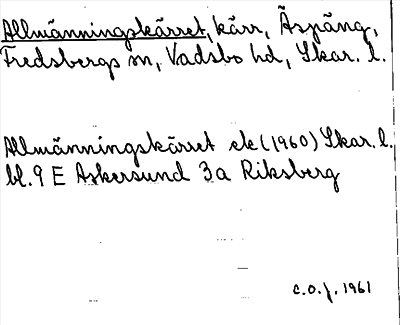 Allmänningskärret, kärr, Äspäng,
Fredsbergs sn, Vadsbo hd, Skar. l.
Allmänningskärret ek (1960) Skar. l.
bl. 9 E Askersund 3a Riksberg
C.O.f. 1961